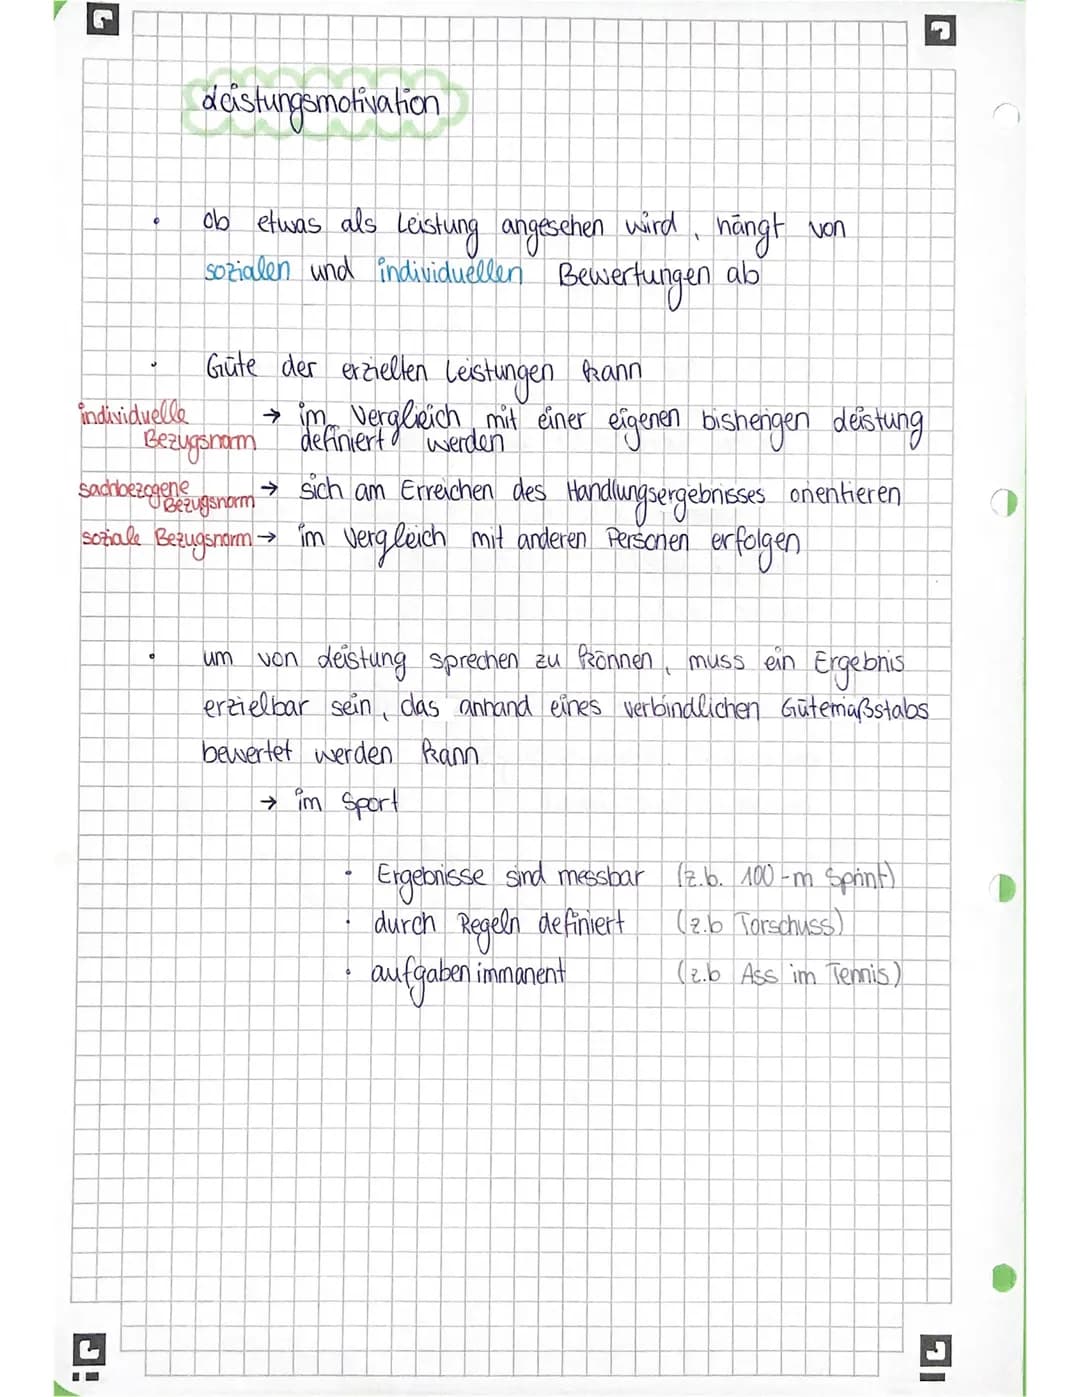 Leistungsmotivation
• ob etwas als Leistung angesehen wird, hängt von
sozialen und individuellen Bewertungen ab
• Güte der erzielten Leistungen kann
individuelle Bezugsnorm → im Vergleich mit einer eigenen bisherigen Leistung
definiert werden
sachbezogene Bezugsnorm → sich am Erreichen des Handlungsergebnisses orientieren
soziale Bezugsnorm → im Vergleich mit anderen Personen erfolgen
• um von Leistung sprechen zu können, muss ein Ergebnis
erzielbar sein, das anhand eines verbindlichen Gütemaßstabs
bewertet werden kann
→ im Sport
• Ergebnisse sind messbar (z.b. 100-m Sprint)
• durch Regeln definiert (z.b Torschuss)
• aufgaben immanent (z.b Ass im Tennis)